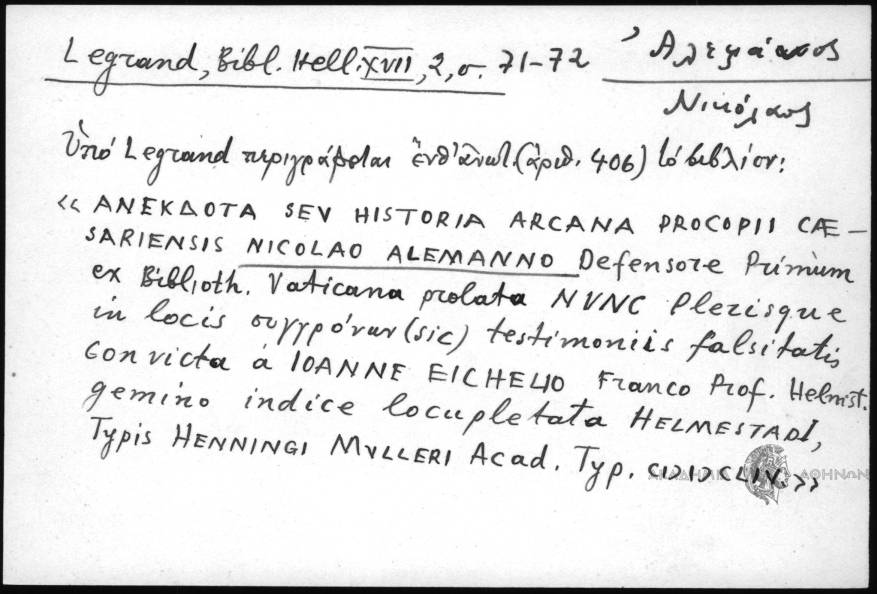 Legrand, Bibl. Hell. XVII, 2, σ. 71-72
Ἀλεμάννος
Νικόλαος
Ὑπό Legrand περιγράφεται ἐνθ' ἀνωτ. (ἀριθ. 406) τό βιβλίον:
« ΑΝΕΚΔΟΤΑ SEV HISTORIA ARCANA PROCOPII CÆ-
SARIENSIS NICOLAO ALEMANNO Defensore Primùm
ex Biblioth. Vaticana prolata NVNC Plerisque
in locis συγγρόνων (sic) testimoniis falsitatis
convicta à IOANNE EICHELIO Franco Prof. Helmst.
gemino indice locupletata HELMESTADI,
Typis HENNINGI MVLLERI Acad. Typ. CIƆIƆCLIV. »
ΑΚΑΔΗΜΙΑ ΑΘΗΝΩΝ